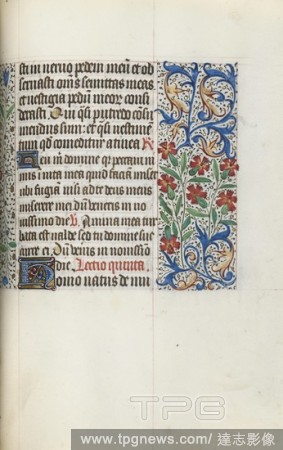 sti in neruo pedem meū et ob
seruasti oms semitas meas
et uestigia pedū meoꝝ consi
derasti Qui qsi putredo cōsu
mendus sum et qsi uestimē
tum qd comeditur a tinea R
Hei m domine qr peccaui ni
mis i uita mea quid faciā miser
ubi fugiā nisi ad te deus meus
miserere mei dū ueneris in no
uissimo die V Anima mea tur
bata est ualde sed tu domine suc
curre ei Dū uenis in nouissīo
die Lectio quinta
Homo natus de mu
TPG
www.tpgnews.com/ 達志影像